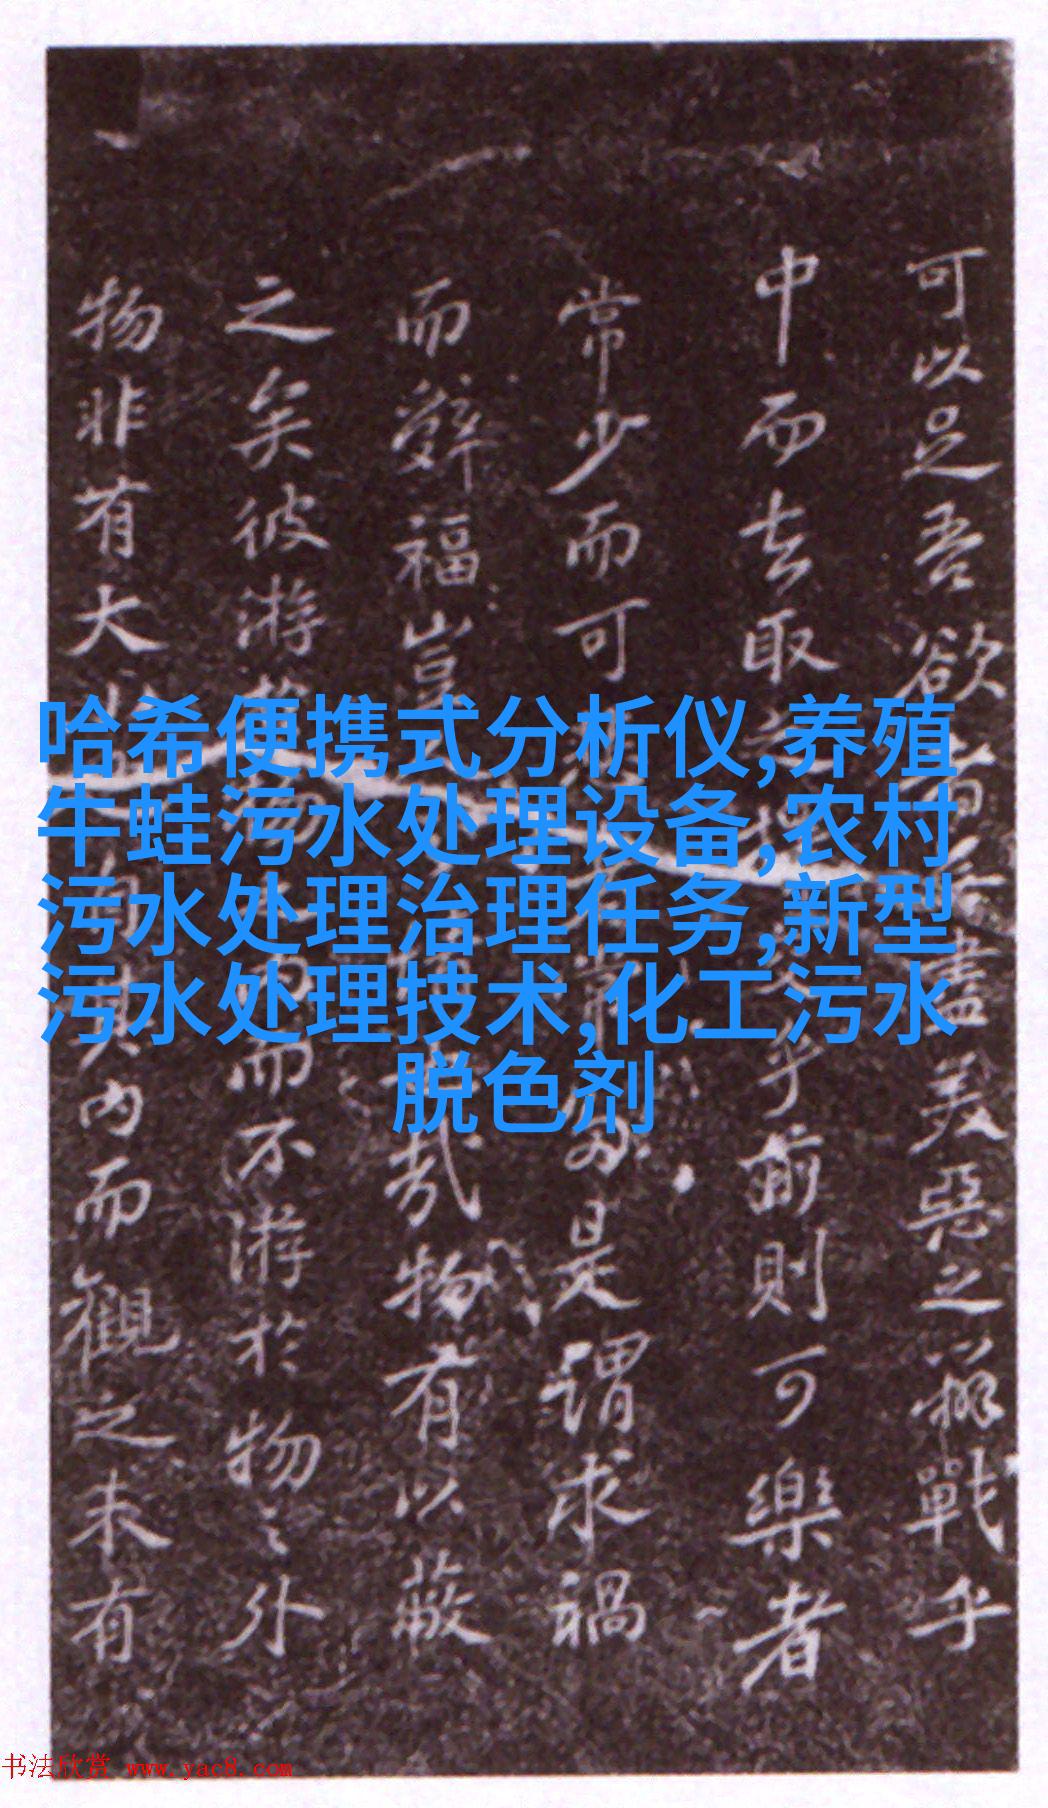 哈希便携式分析仪,养殖
牛蛙污水处理设备,农村
污水处理治理任务,新型
污水处理技术,化工污水
脱色剂
可以足吾欲者盡美惡之辨戰乎
中而去取之擇乎前則可樂者
常少而可是謂求禍
而辭福豈哉物有以蔽
之矣彼游而不游於物之外
物非有大内而觀之未有
书法欣赏 www.yac8.com